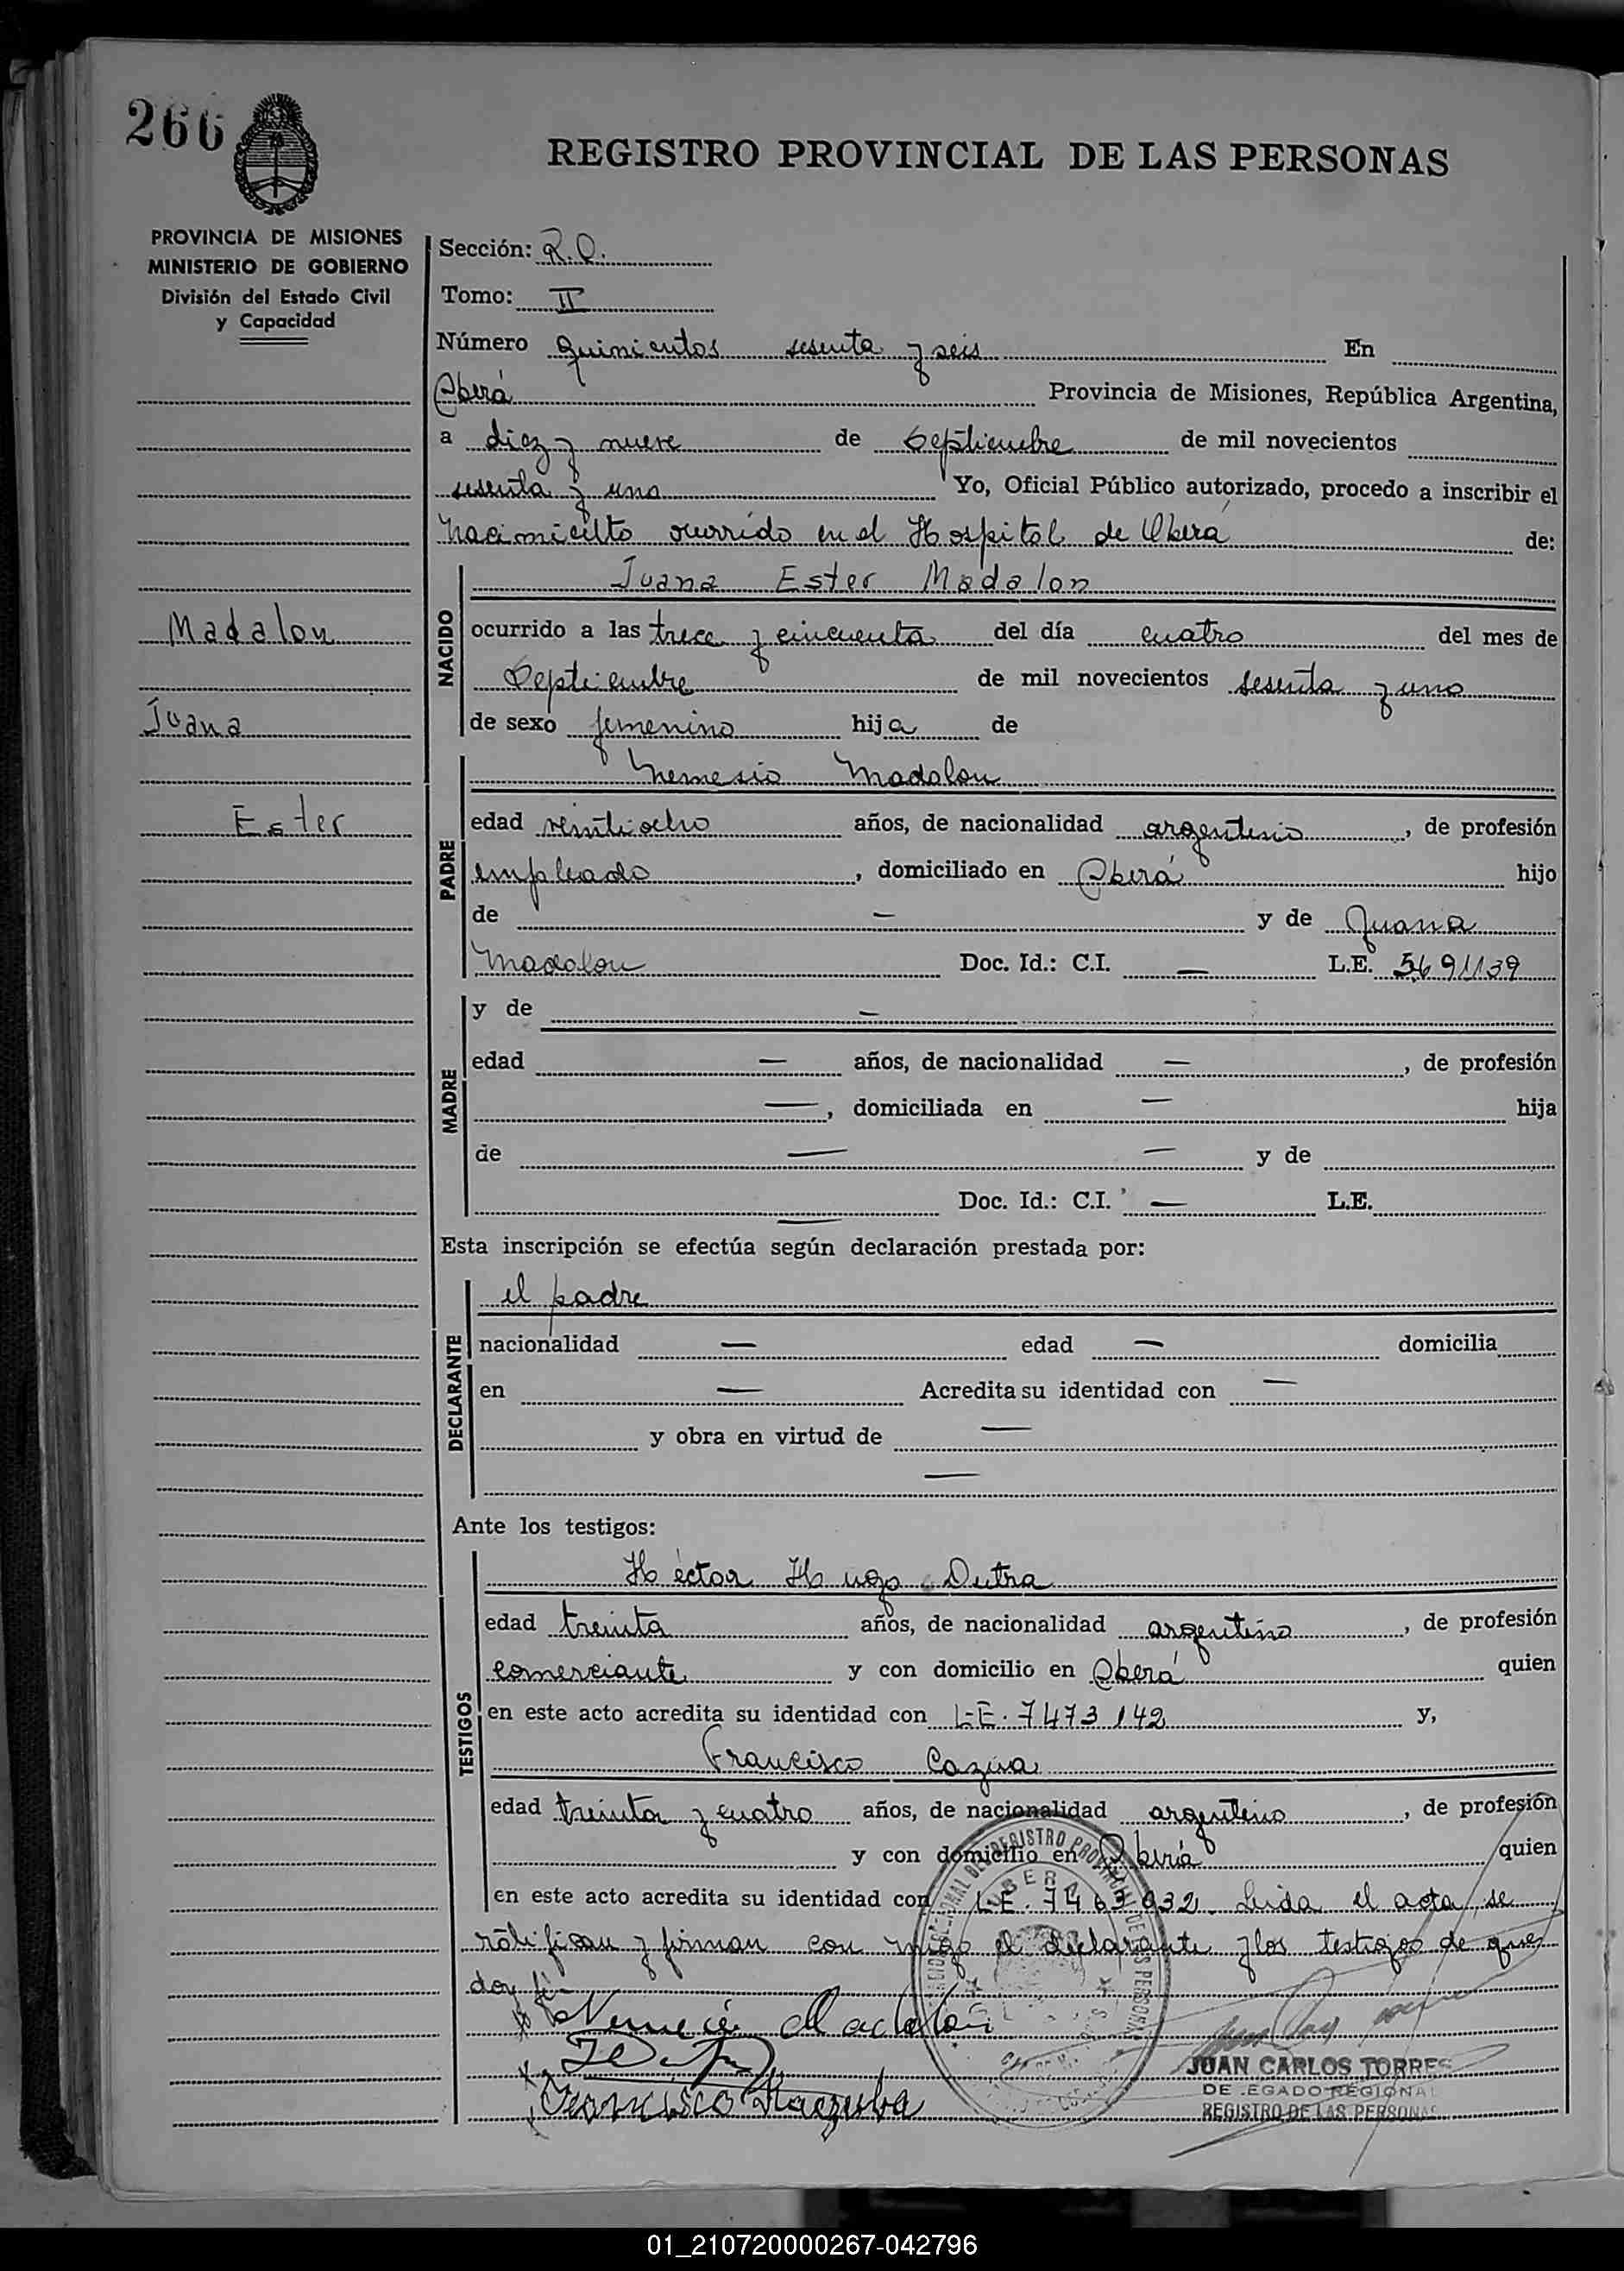 266
REGISTRO PROVINCIAL DE LAS PERSONAS
PROVINCIA DE MISIONES
MINISTERIO DE GOBIERNO
División del Estado Civil
y Capacidad
Madalon
Juana
Ester
Sección: R.O.
Tomo: II
Número quinientos sesenta y seis En
Oberá Provincia de Misiones, República Argentina,
a diez y nueve de Septiembre de mil novecientos
sesenta y uno Yo, Oficial Público autorizado, procedo a inscribir el
nacimiento ocurrido en el Hospital de Oberá de:
NACIDO
Juana Ester Madalon
ocurrido a las trece y cincuenta del día cuatro del mes de
Septiembre de mil novecientos sesenta y uno
de sexo femenino hija de
PADRE
Nemesio Madalon
edad veintiocho años, de nacionalidad argentino, de profesión
empleado, domiciliado en Oberá hijo
de — y de Juana
Madalon Doc. Id.: C.I. — L.E. 5691139
MADRE
y de —
edad — años, de nacionalidad —, de profesión
—, domiciliada en — hija
de — — y de
— Doc. Id.: C.I. — L.E.
Esta inscripción se efectúa según declaración prestada por:
DECLARANTE
el padre
nacionalidad — edad — domicilia
en — Acredita su identidad con —
y obra en virtud de —
—
Ante los testigos:
TESTIGOS
Héctor Hugo Dutra
edad treinta años, de nacionalidad argentino, de profesión
comerciante y con domicilio en Oberá quien
en este acto acredita su identidad con L.E. 7473142 y,
Francisco
edad treinta y cuatro años, de nacionalidad argentino, de profesión
y con domicilio en Oberá quien
en este acto acredita su identidad con L.E. 7463932. Leida el acta, se
ratifican y firman con migo el declarante y los testigos de que
doy fé
Nemecio Madalon
Francisco Kaczuba
OBERA
JUAN CARLOS TORRES
DELEGADO REGIONAL
REGISTRO DE LAS PERSONAS
01_210720000267-042796